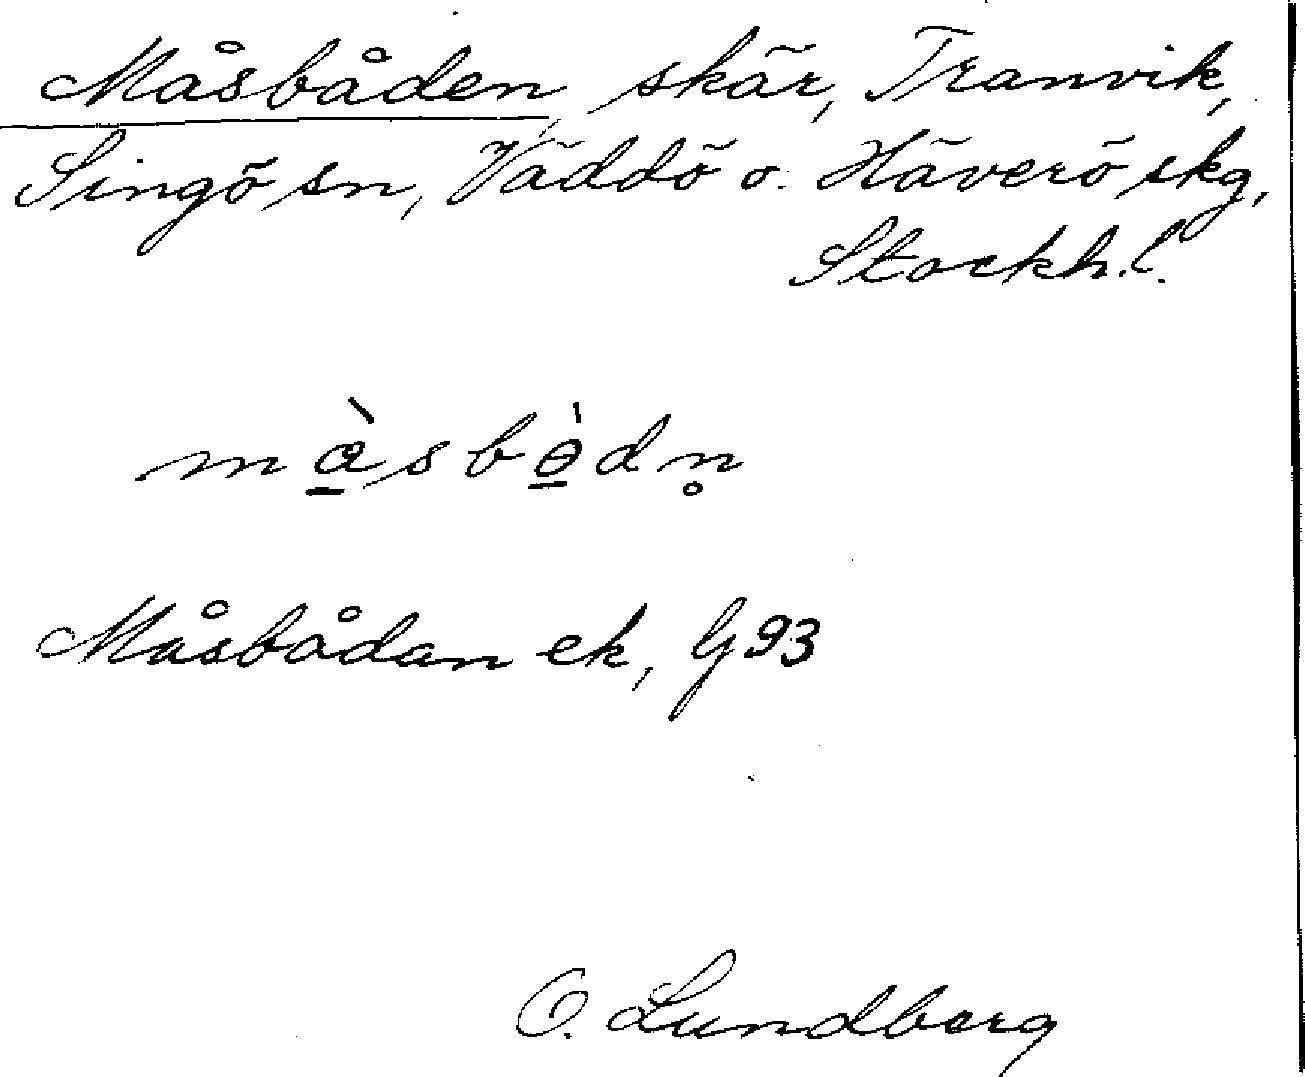 Måsbåden, skär, Tranvik,
Singö sn, Väddö o. Häverö skg,
Stockh. l.
mà̱sbɵ̱̀dn̥
Måsbådan ek, G93
O. Lundberg